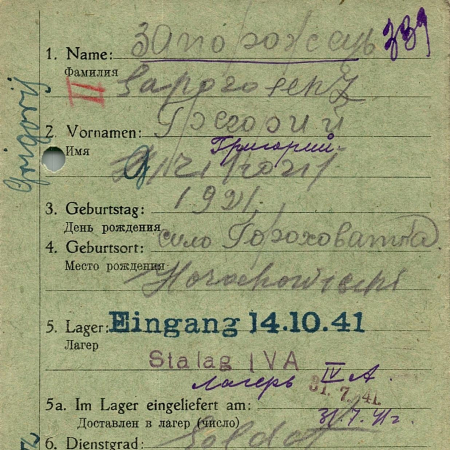 1. Name: Запорожець 339
Фамилия
II Saporosenz
2. Vornamen: Григорий
Имя Григорий
Grigorij
3. Geburtstag: 1921.
День рождения
4. Geburtsort: село Гороховатка
Место рождения
5. Lager: Eingang 14.10.41
Лагерь
Stalag IV A
Лагерь IV A.
31. 7. 41.
5a. Im Lager eingeliefert am: 31.7.41г
Доставлен в лагерь (число)
6. Dienstgrad: Soldat